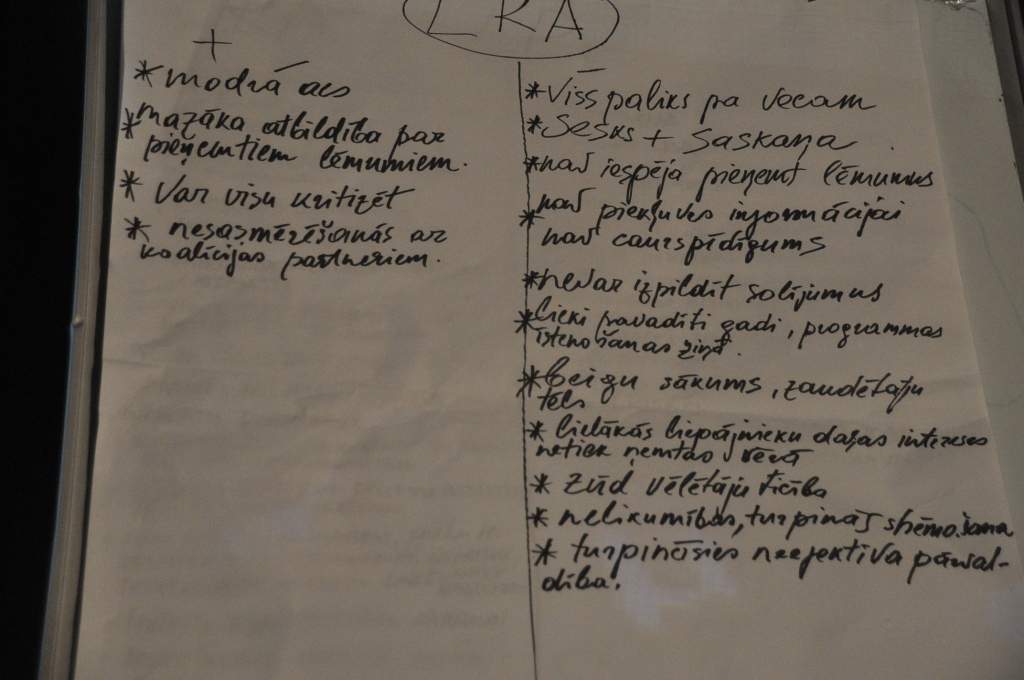 LRA
+
* modrā acs
* mazāka atbildība par
pieņemtiem lēmumiem.
* Var visu kritizēt
* nesasmērēšanās ar
koalīcijas partneriem.
* Viss paliks pa vecam
* Sesks + Saskaņa
* nav iespēja pieņemt lēmumus
* nav piekļuves informācijai
nav caurspīdīgums
* nevar izpildīt solījumus
* lieki pavadīti gadi, programmas
īstenošanas ziņā.
* beigu sākums, zaudētāju
tēls
* lielākās liepājnieku daļas intereses
netiek ņemtas vērā
* zūd vēlētāju ticība
* nelikumības, turpinās shēmošana
* turpināsies neefektīva pārval-
dība.